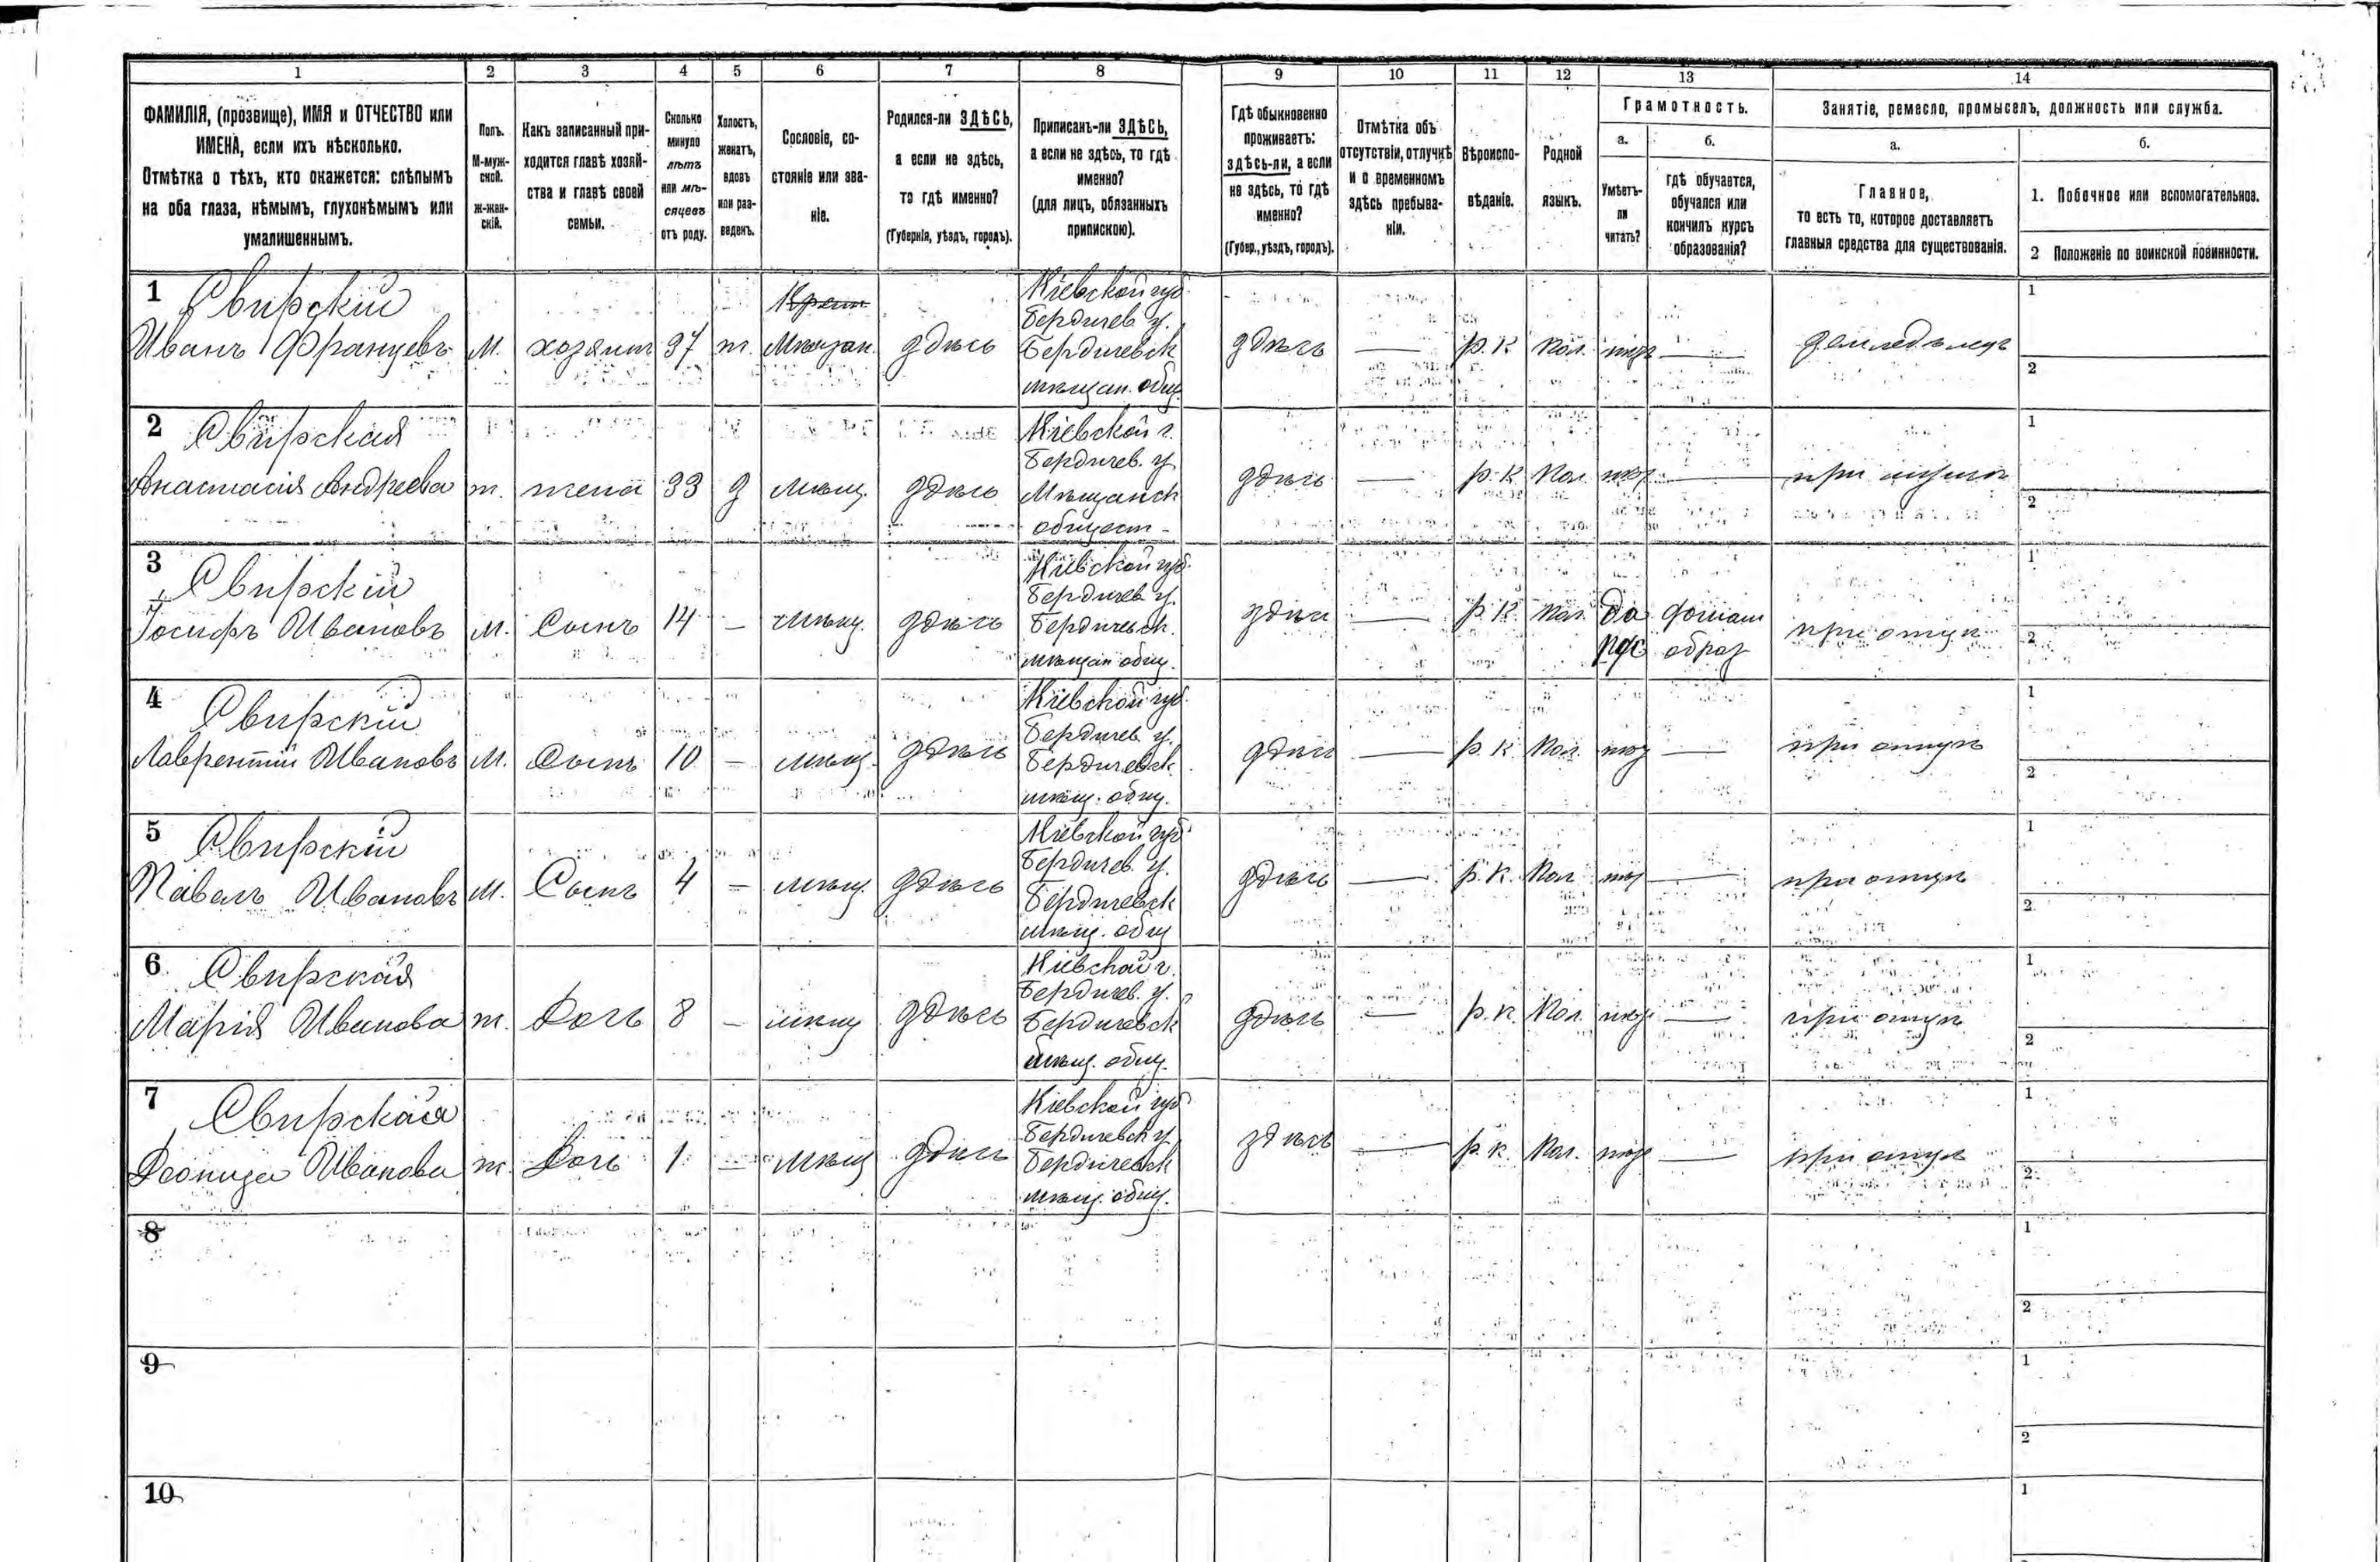 1 2 3 4 5 6 7 8 9 10 11 12 13 14
ФАМИЛІЯ, (прозвище), ИМЯ и ОТЧЕСТВО или
ИМЕНА, если ихъ нѣсколько.
Отмѣтка о тѣхъ, кто окажется: слѣпымъ
на оба глаза, нѣмымъ, глухонѣмымъ или
умалишеннымъ.
Полъ.
М-муж-
ской.
Ж-жен-
скій.
Какъ записанный при-
ходится главѣ хозяй-
ства и главѣ своей
семьи.
Сколько
минуло
лѣтъ
или мѣ-
сяцевъ
отъ роду.
Холостъ,
женатъ,
вдовъ
или раз-
веденъ.
Сословіе, со-
стояніе или зва-
ніе.
Родился-ли ЗДѢСЬ,
а если не здѣсь,
то гдѣ именно?
(Губернія, уѣздъ, городъ).
Приписанъ-ли ЗДѢСЬ,
а если не здѣсь, то гдѣ
именно?
(для лицъ, обязанныхъ
припискою).
Гдѣ обыкновенно
проживаетъ:
здѣсь-ли, а если
не здѣсь, то гдѣ
именно?
(Губер., уѣздъ, городъ).
Отмѣтка объ
отсутствіи, отлучкѣ
и о временномъ
здѣсь пребыва-
ніи.
Вѣроиспо-
вѣданіе.
Родной
языкъ.
Грамотность.
а.
Умѣетъ-
ли
читать?
б.
гдѣ обучается,
обучался или
кончилъ курсъ
образованія?
Занятіе, ремесло, промыселъ, должность или служба.
а.
Главное,
то есть то, которое доставляетъ
главныя средства для существованія.
б.
1. Побочное или вспомогательное.
2 Положеніе по воинской повинности.
1 Свирскій
Иванъ Францевъ
М.
хозяинъ
37
ж.
Крест
Мѣщан.
здѣсь
Кіевской губ
Бердичев у.
Бердичевск
мѣщан. общ.
здѣсь
—
р. К
Пол.
нѣтъ
—
земледѣлецъ
1
2
2 Свирская
Анастасія Андреева
ж.
жена
33
З
мѣщ.
здѣсь
Кіевской г.
Бердичев. у
Мѣщанск
общест-
здѣсь
—
р. К
Пол.
нѣт
—
при мужѣ
1
2
3 Свирскій
Іосифъ Ивановъ
М.
Сынъ
14
—
мѣщ.
здѣсь
Кіевской губ.
Бердичев у.
Бердичевск.
мѣщан общ.
здѣсь
—
р. К.
Пол.
да
рус
домаш
образ
при отцѣ
1
2
4 Свирскій
Лаврентій Ивановъ
М.
Сынъ
10
—
мѣщ.
здѣсь
Кіевской губ.
Бердичев у.
Бердичевск.
мѣщ. общ.
здѣсь
—
р. К.
Пол.
нѣт
—
при отцѣ
1
2
5 Свирскій
Павелъ Ивановъ
М.
Сынъ
4
—
мѣщ.
здѣсь
Кіевской губ
Бердичев. у.
Бердичевск
мѣщ. общ
здѣсь
—
р. К.
Пол
нѣт
—
при отцѣ
1
2
6 Свирская
Марія Иванова
ж.
Дочь
8
—
мѣщ
здѣсь
Кіевской г.
Бердичев. у.
Бердичевск
мѣщ. общ.
здѣсь
—
р. К.
Пол.
нѣт
—
при отцѣ
1
2
7 Свирская
Иванова
ж.
Дочь
1
—
мѣщ
здѣсь
Кіевской губ
Бердичевск у.
Бердичевск
мѣщ. общ.
здѣсь
—
р. К
Пол.
нѣт
—
при отцѣ
1
2
8
1
2
9
1
2
10
1